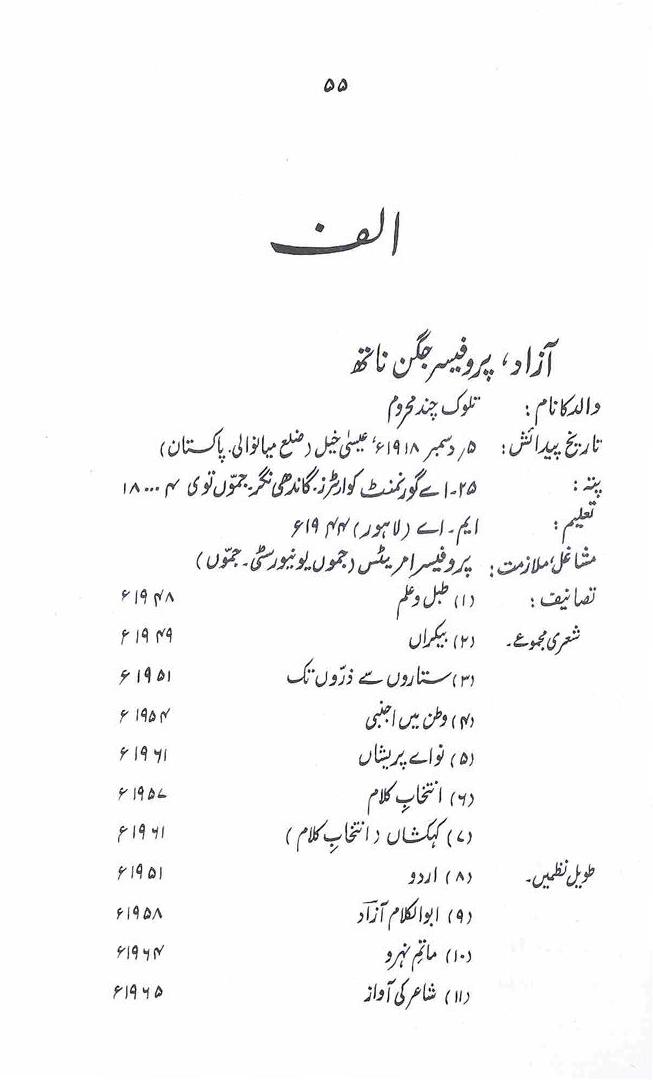 ۵۵
الف
آزاد، پروفیسر جگن ناتھ
والد کا نام: تلوک چند محروم
تاریخ پیدائش: ۵؍ دسمبر ۱۹۱۸ء، عیسیٰ خیل (ضلع میانوالی۔ پاکستان)
پتہ: ۲۵۔اے گورنمنٹ کوارٹرز۔ گاندھی نگر۔ جمّوں توی ۱۸۰۰۰۴
تعلیم: ایم۔اے (لاہور) ۱۹۴۴ء
مشاغل؍ملازمت: پروفیسر امریٹس (جموں یونیورسٹی۔ جمّوں)
تصانیف: (۱) طبل و علم ۱۹۴۸ء
شعری مجموعے۔ (۲) بیکراں ۱۹۴۹ء
(۳) ستاروں سے ذرّوں تک ۱۹۵۱ء
(۴) وطن میں اجنبی ۱۹۵۴ء
(۵) نواے پریشاں ۱۹۶۱ء
(۶) انتخابِ کلام ۱۹۵۷ء
(۷) کہکشاں (انتخابِ کلام) ۱۹۶۱ء
طویل نظمیں۔ (۸) اردو ۱۹۵۱ء
(۹) ابوالکلام آزاد ۱۹۵۸ء
(۱۰) ماتمِ نہرو ۱۹۶۴ء
(۱۱) شاعر کی آواز ۱۹۶۵ء